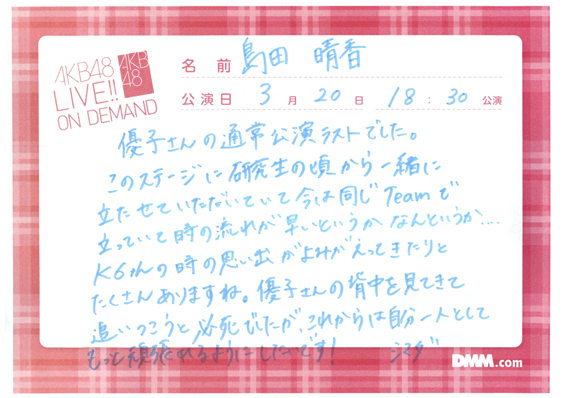 AKB48
LIVE!!
ON DEMAND
AKB
48
名 前 島田 晴香
公演日 3 月 20 日 18 : 30 公演
優子さんの通常公演ラストでした。
このステージに研究生の頃から一緒に
立たせていただいていて今は同じTeamで
立っていて時の流れが早いというかなんというか…
K6thの時の思い出がよみがえってきたりと
たくさんありますね。優子さんの背中を見てきて
追いつこうと必死でしたが、これからは自分一人として
もっと頑張れるようにしたいです! シマダ
DMM.com